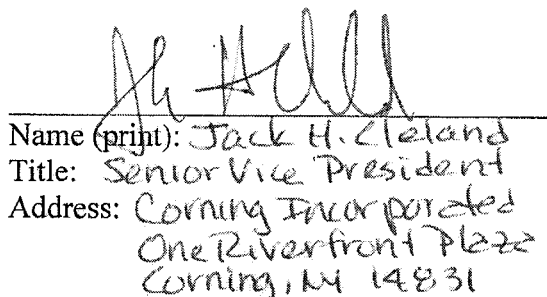 Name (print): Jack H. Cleland
Title: Senior Vice President
Address: Corning Incorporated
One Riverfront Plaza
Corning, NY 14831